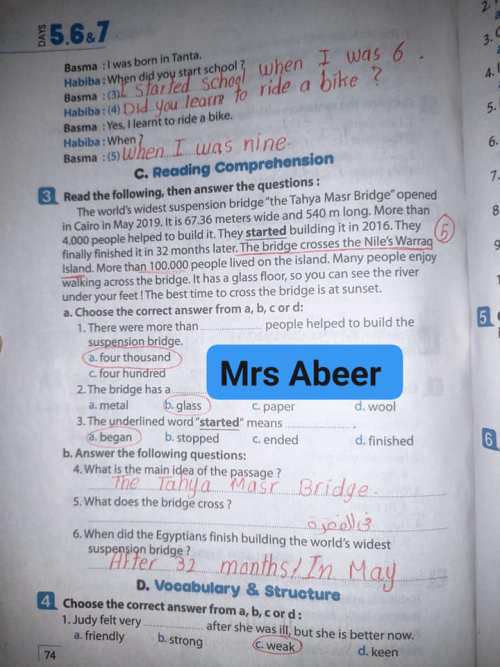 DAYS 5.6&7
Basma : I was born in Tanta.
Habiba : When did you start school ?
Basma : (3) I started school when I was 6 .
Habiba : (4) Did you learn to ride a bike ?
Basma : Yes, I learnt to ride a bike.
Habiba : When ?
Basma : (5) When I was nine.
C. Reading Comprehension
3 Read the following, then answer the questions :
The world's widest suspension bridge "the Tahya Masr Bridge" opened
in Cairo in May 2019. It is 67.36 meters wide and 540 m long. More than
4,000 people helped to build it. They started building it in 2016. They
finally finished it in 32 months later. The bridge crosses the Nile's Warraq 5
Island. More than 100.000 people lived on the island. Many people enjoy
walking across the bridge. It has a glass floor, so you can see the river
under your feet ! The best time to cross the bridge is at sunset.
a. Choose the correct answer from a, b, c or d:
1. There were more than .................... people helped to build the
suspension bridge.
a. four thousand
c. four hundred
Mrs Abeer
2. The bridge has a
a. metal b. glass c. paper d. wool
3. The underlined word "started" means .................... .
a. began b. stopped c. ended d. finished
b. Answer the following questions:
4. What is the main idea of the passage ?
The Tahya Masr Bridge.
5. What does the bridge cross ?
في الفقرة
6. When did the Egyptians finish building the world's widest
suspension bridge ?
After 32 months/ In May
D. Vocabulary & Structure
4 Choose the correct answer from a, b, c or d :
1. Judy felt very .................... after she was ill, but she is better now.
a. friendly b. strong c. weak d. keen
74
2.
3.
4.
5.
6.
7.
8
9
5
6